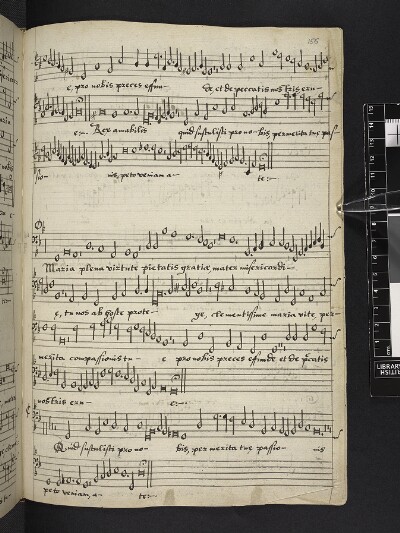 e, pro nobis preces effun- de et de peccatis nostris eru-
e:- Rex amabilis quid sustulisti pro no- bis, per merita tue pas-
sio- nis, peto veniam a- te:-
O
Maria plena virtute pietatis gratiæ, mater misericordi-
e, tu nos ab hoste prote- ge, clementissime maria vite, per
merita compassionis tu- e pro nobis preces effunde et de peccatis
nostris eru- e:-
Quid sustulisti pro no- bis, per merita tue passio- nis
peto veniam, a- te:-